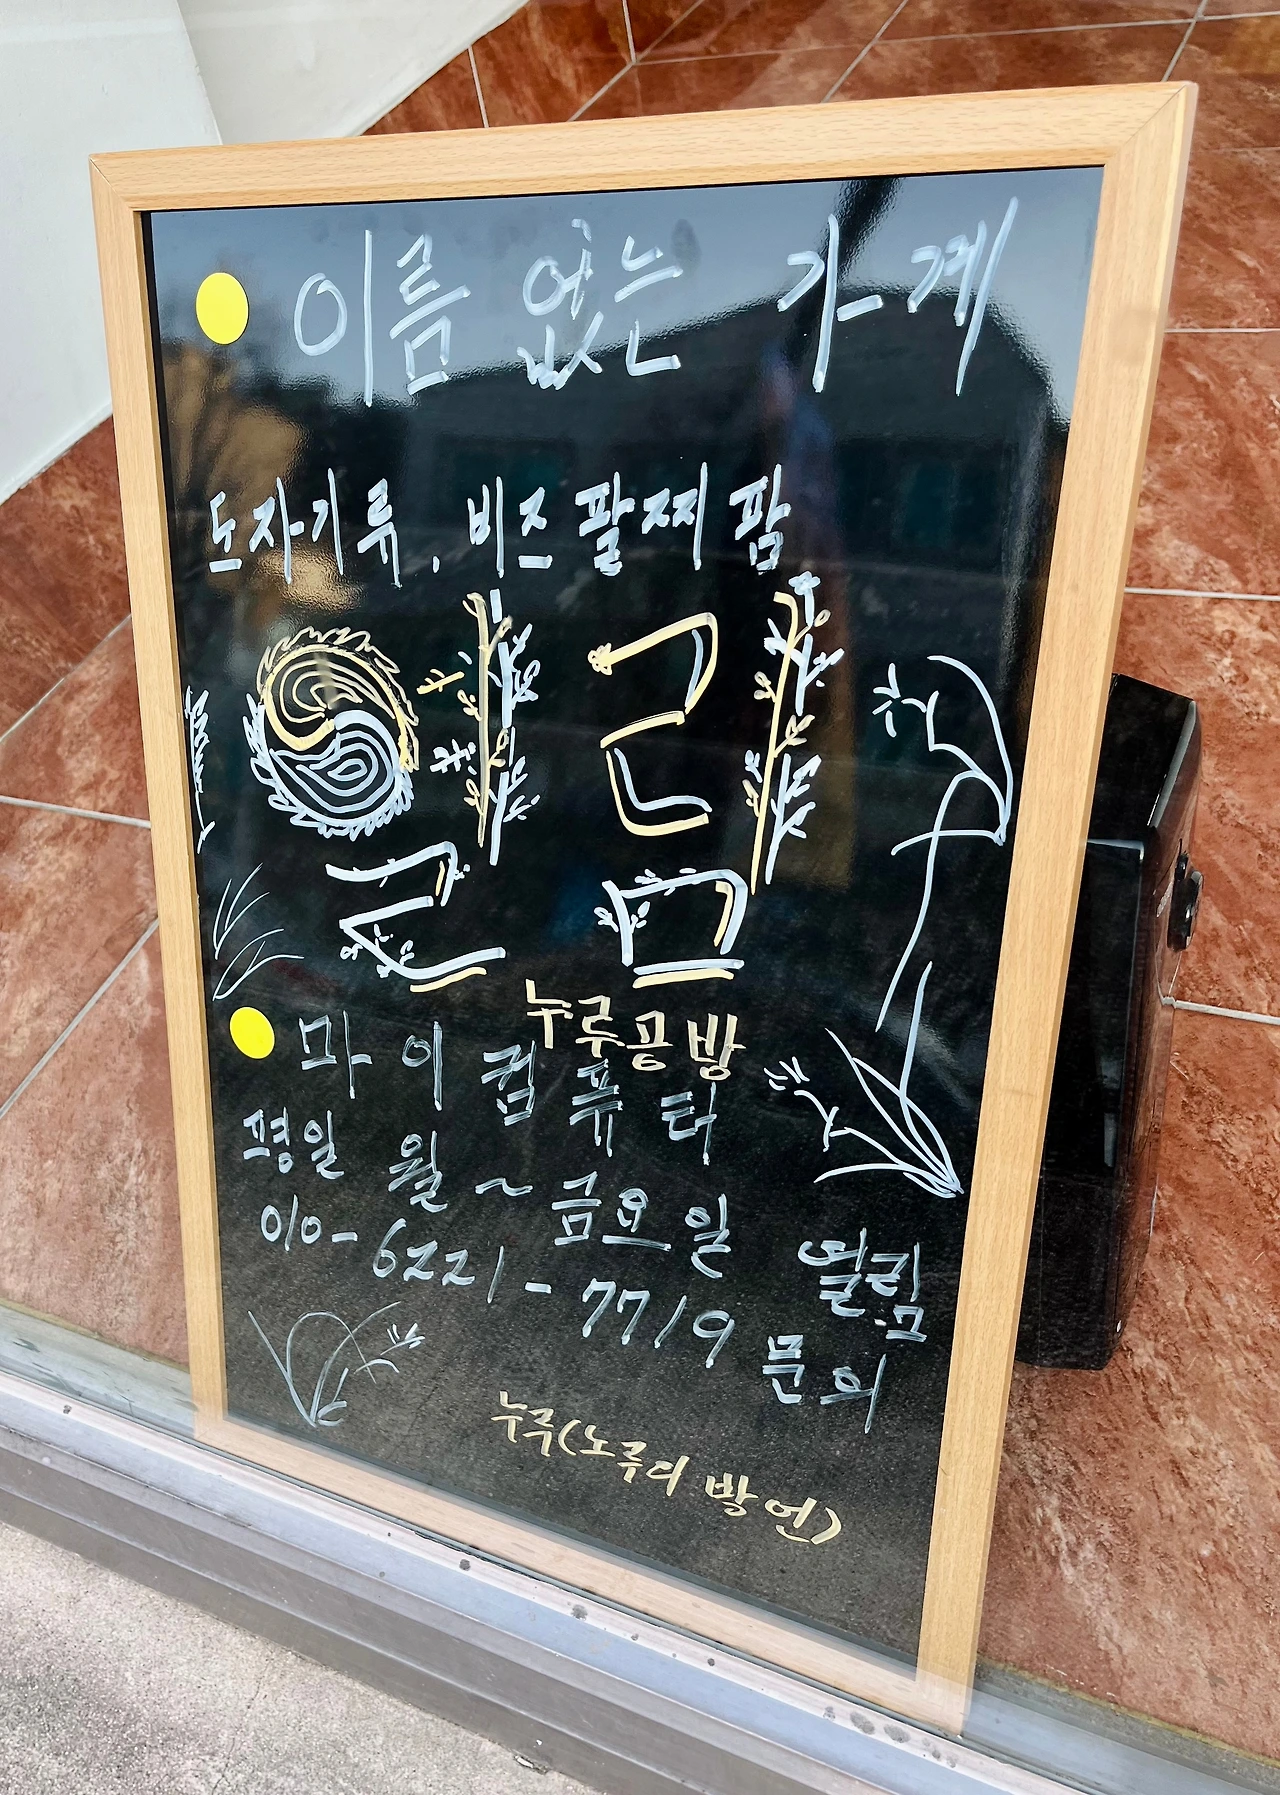 이름 없는 가게
도자기류, 비즈 팔찌 팜
열림
누루공방
마이컴퓨터
평일 월~금요일 열림
010-6221-7719 문의
누루(노루의 방언)